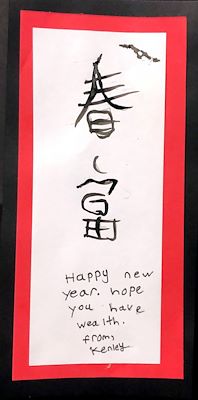 春
富
Happy new
year. hope
you have
wealth.
from,
Kenley